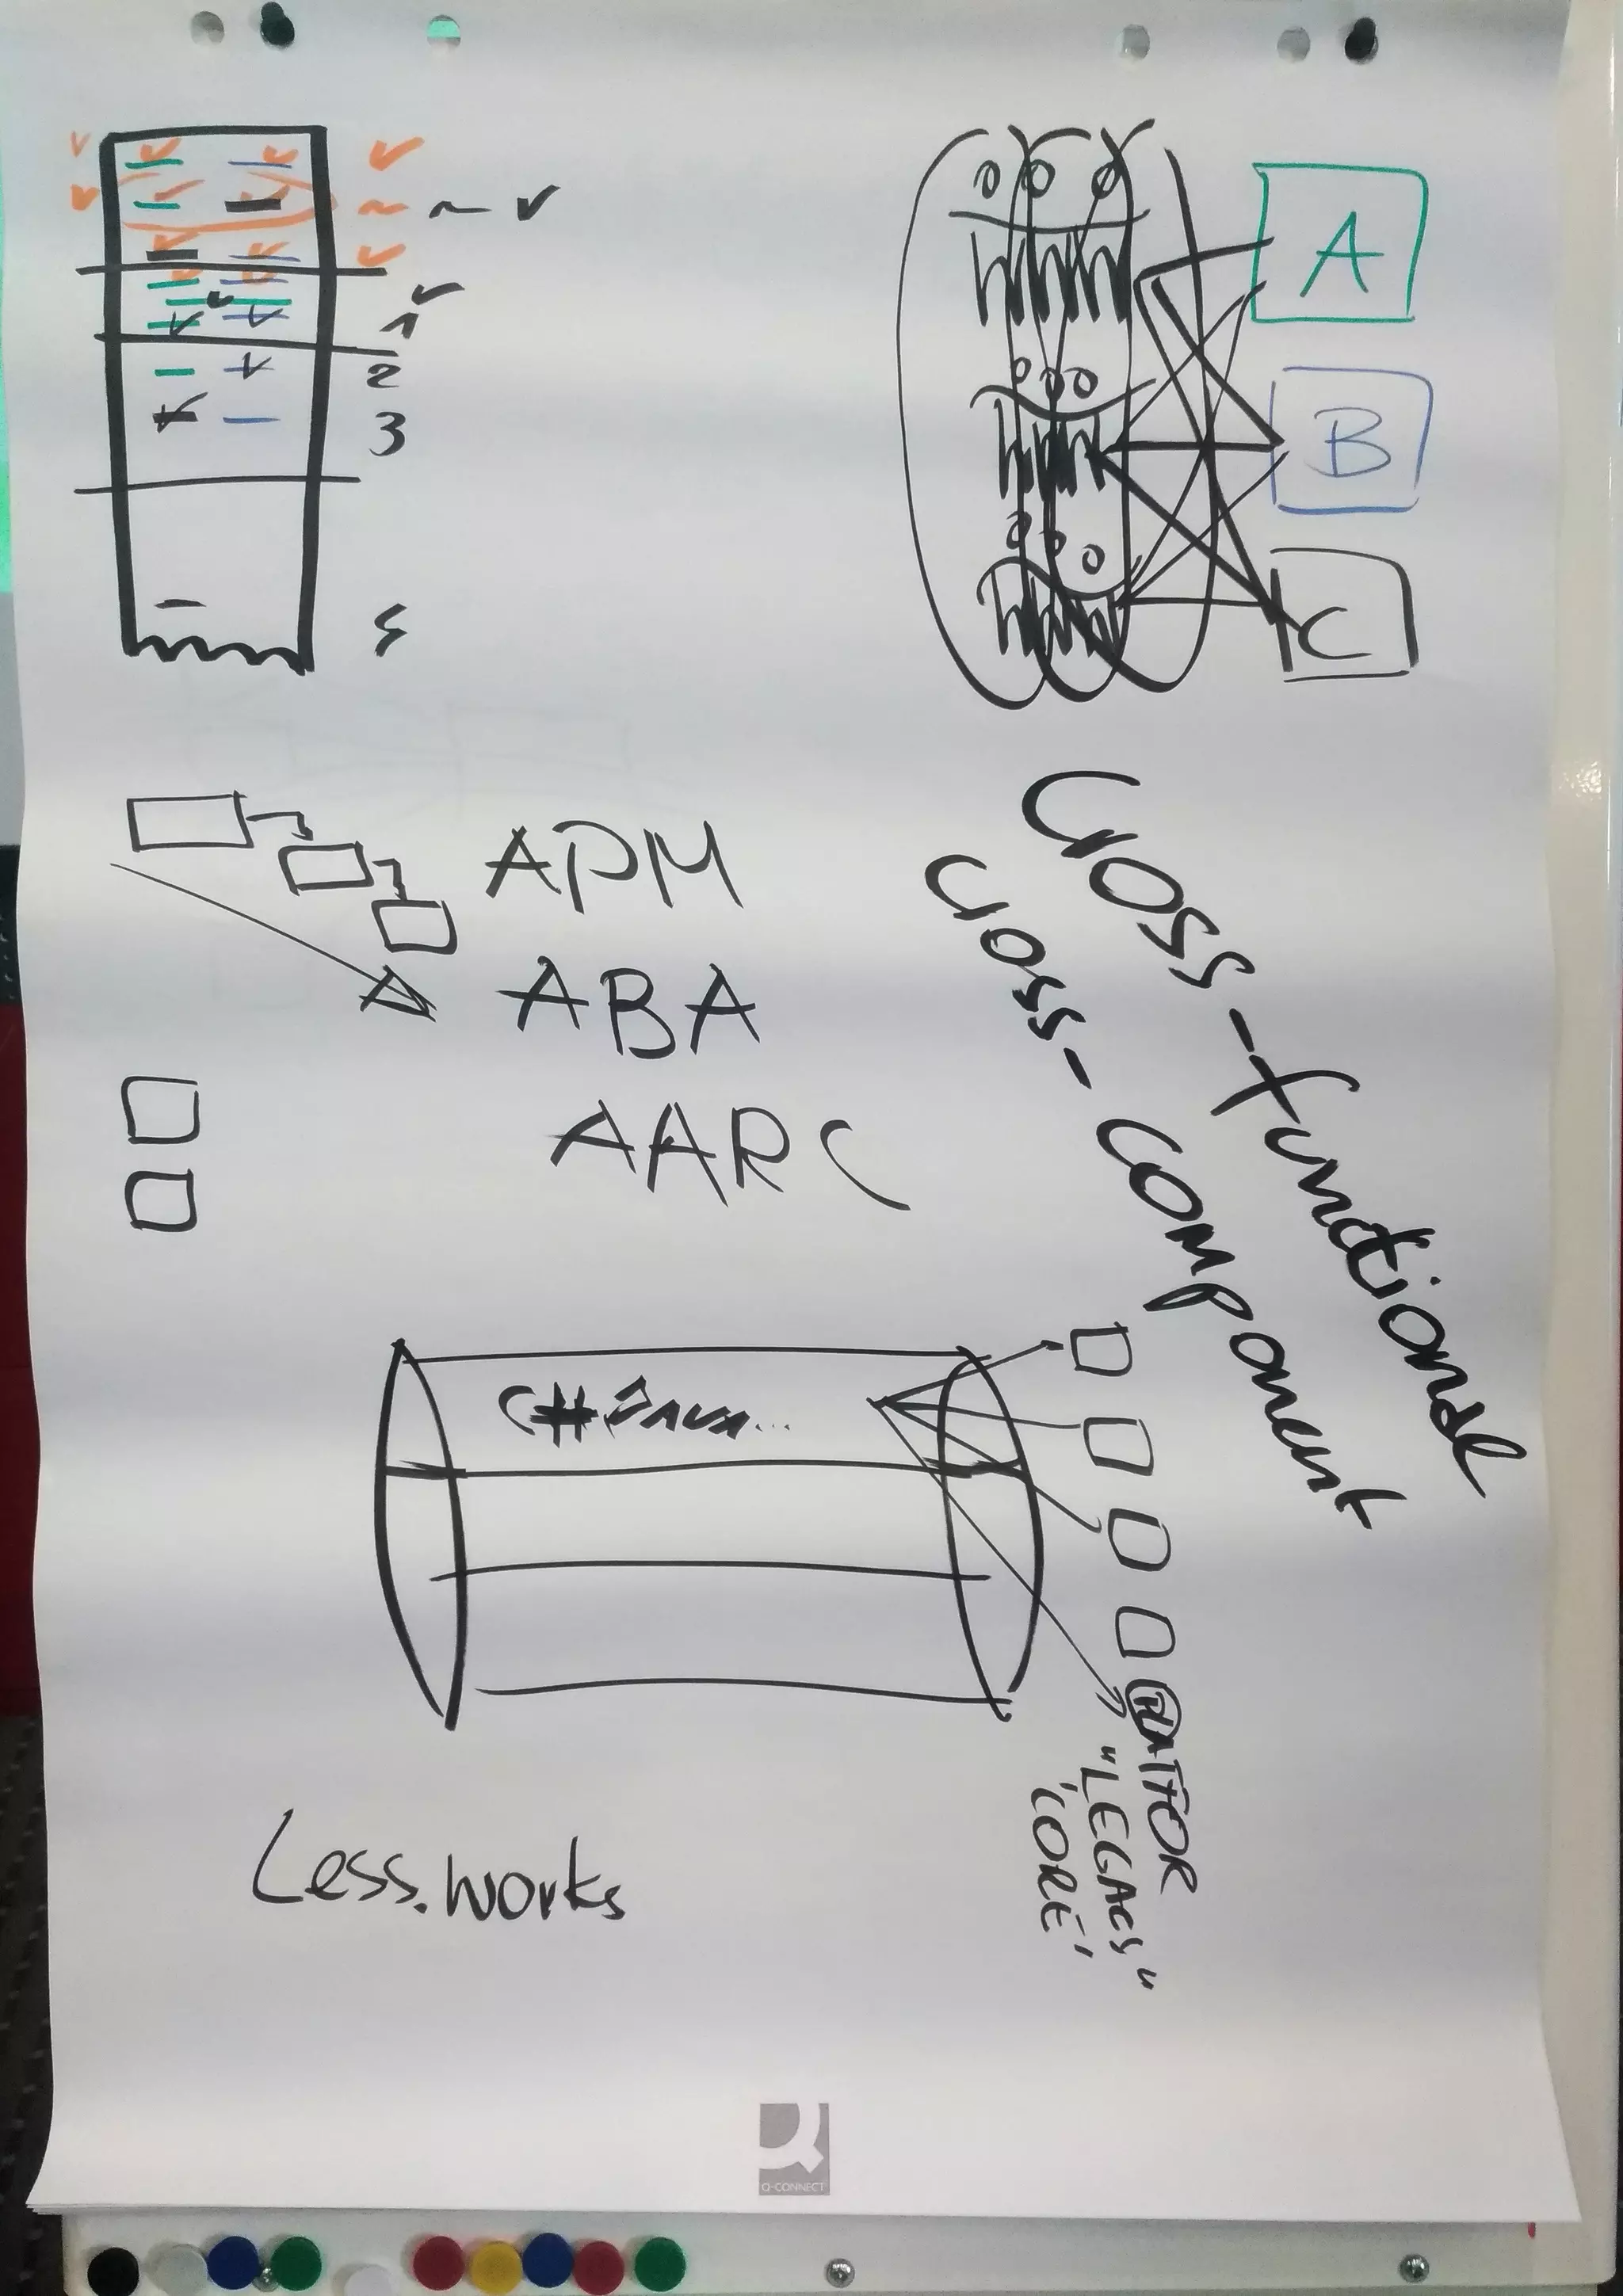 A
B
C
1
2
3
Cross-functional
Cross-component
APM
ABA
AARC
C# Java...
"LEGACY"
'CORE'
Less.works
Q-CONNECT